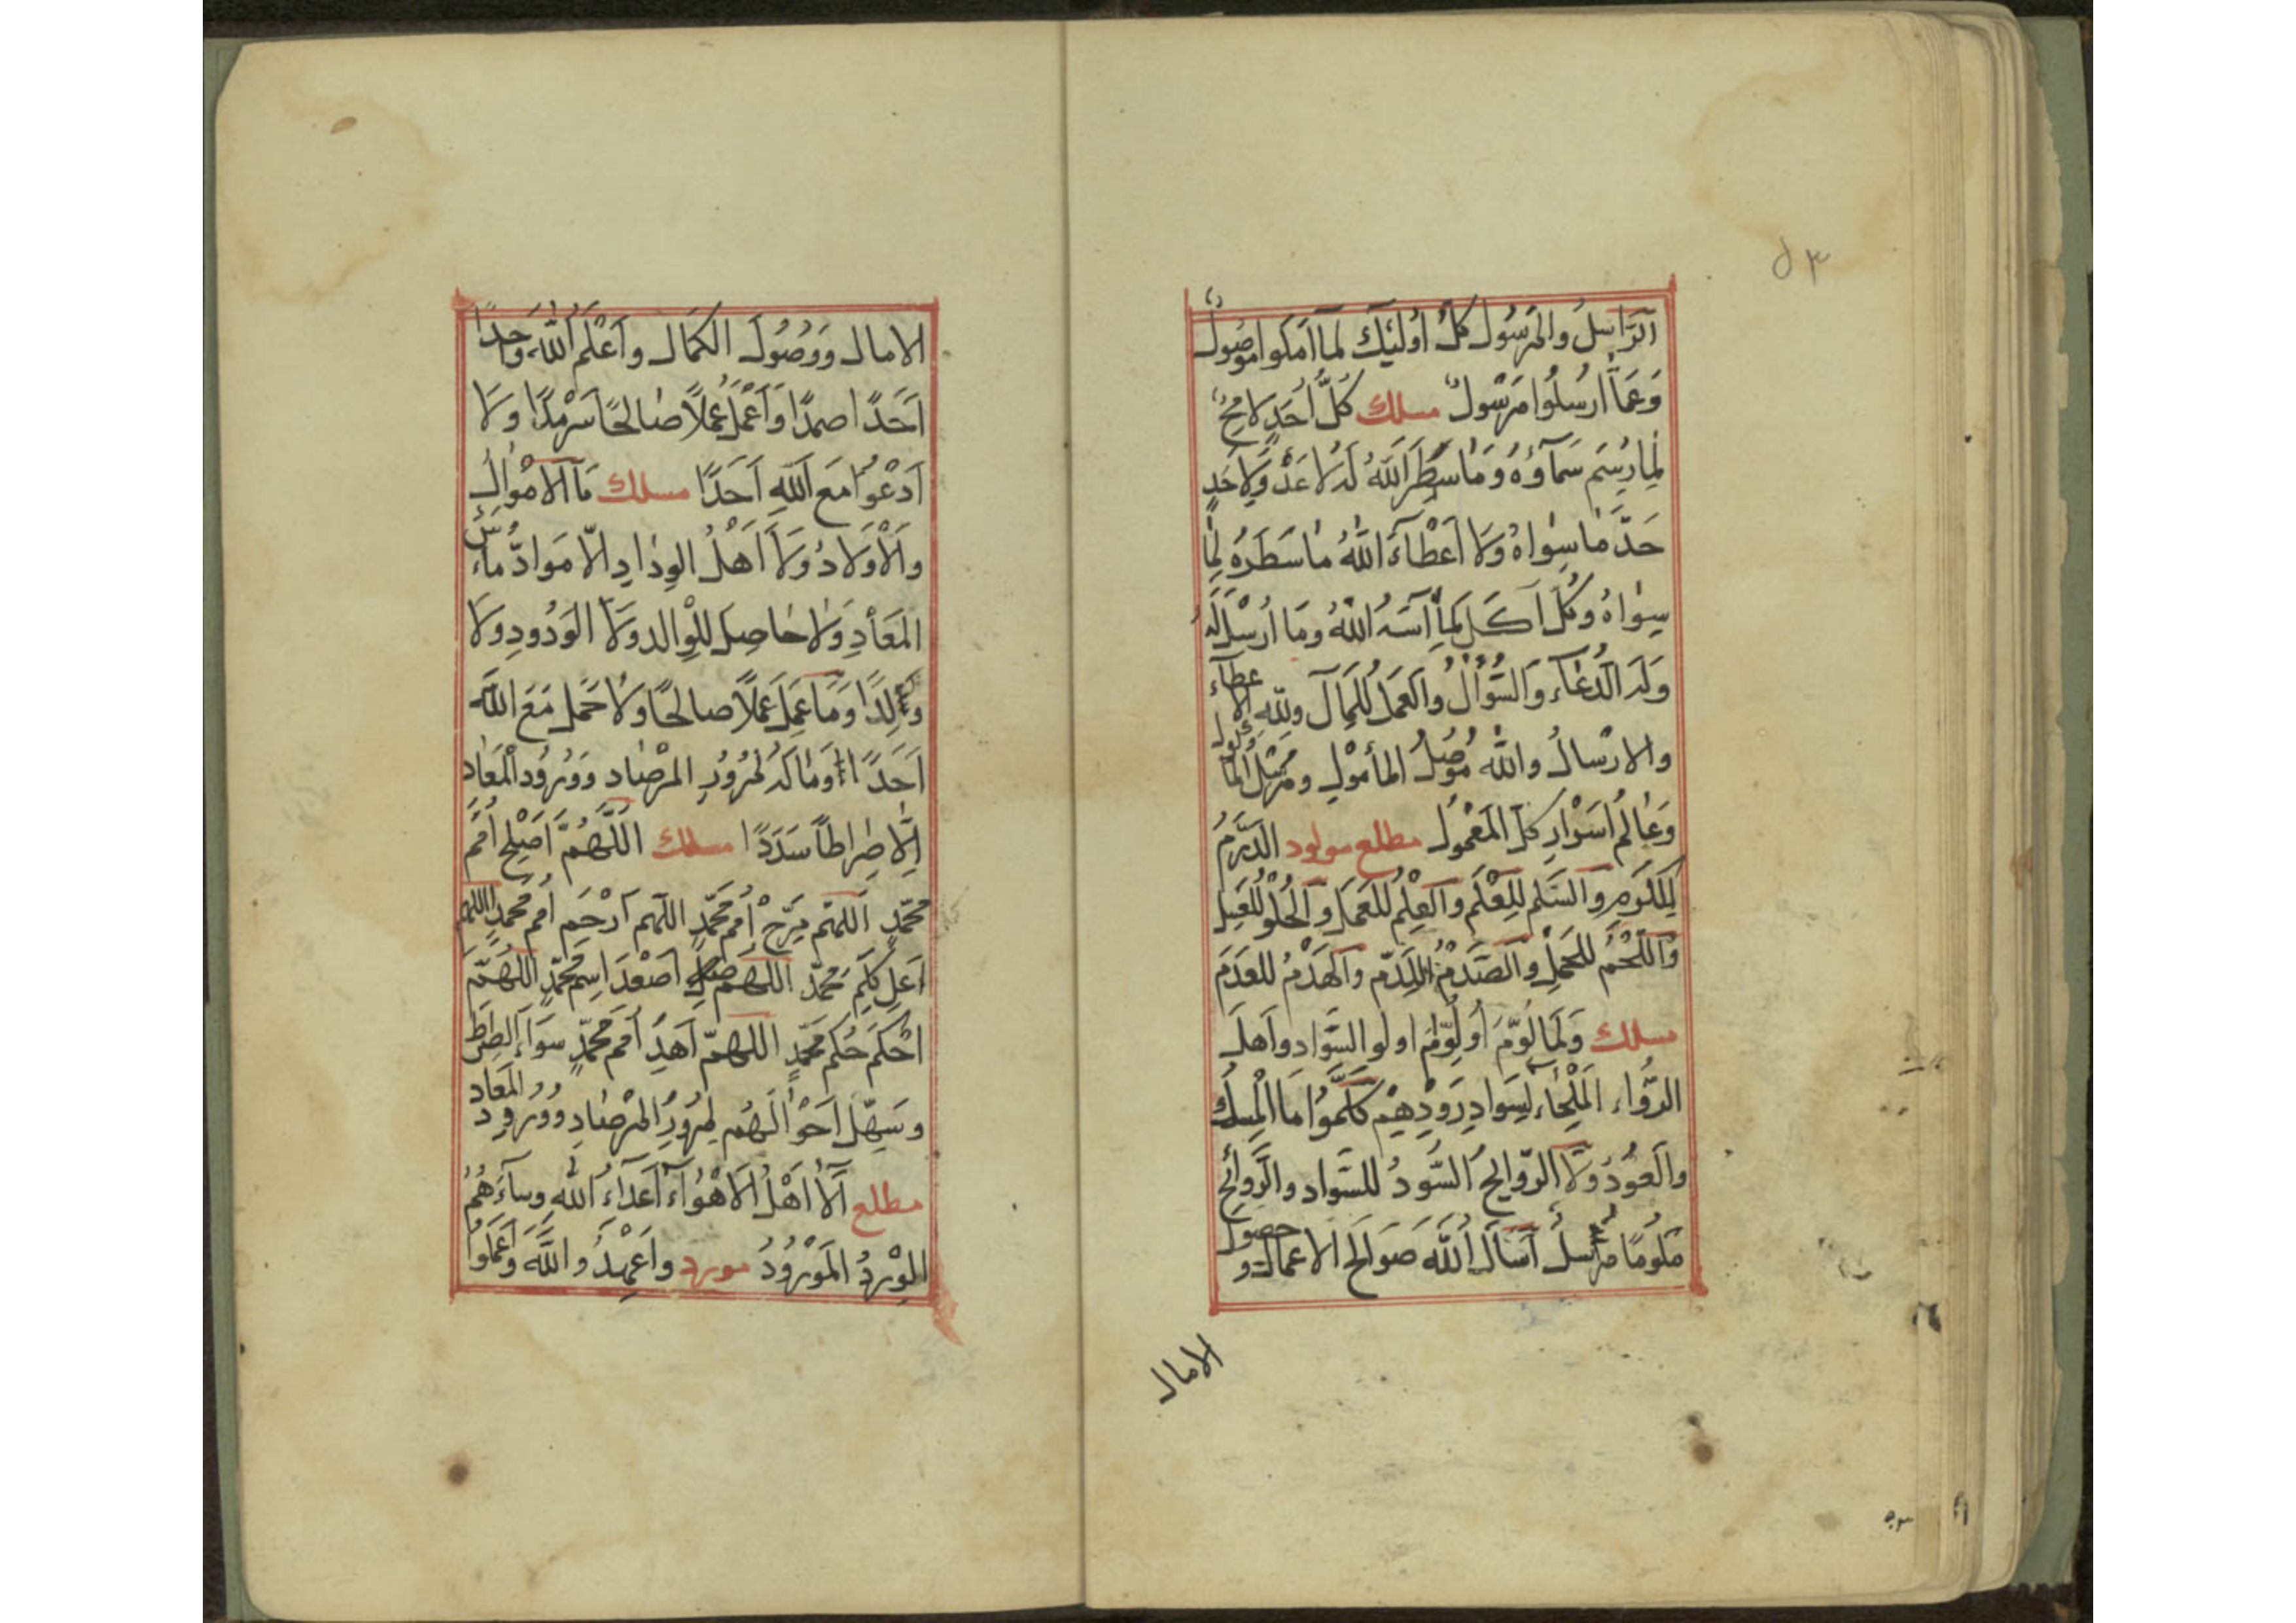 الرَّاسِلُ والمَرْسُول كلّ اُولئِكَ لمَا اَمَكوا موصُول
وَعَمَّا اُرْسِلُوا مَرْسُول مسلك كُلّ اَحَدٍ لا مح
لِمَا رُسِمَ سَمآؤهُ وَمَا سَطَرَ اللهُ لَهُ لا عَدّ وَلا حَدٍ
حَدَّ مَا سِوَاهُ وَلا اَعْطَاءَ اللهُ مَا سَطَرَهُ لِمَا
سِوَاهُ وكُلّ اَكَلَ لِمَا آسَهُ اللهُ وَمَا اُرْسِلَ لَهُ
وَلَهُ الدُّعَاء وَالسُّؤالُ والعَمَل لِلكَمَال وللهِ الا عطآء
والارْسالُ واللهُ مُوصِلُ المأمُوْل ومُرْسِلُ
وَعَالِمُ اَسْوَارِ كلّ المَعْمُول مطلع مولود الدِّرَمُ
لِلكَرَمِ وَالسَّلم لِلعْلَم وَالعِلْمُ للعَمَل وَالحُلْو لِلعَسَل
وَاللّحْمُ للحَمل وَالصَّدَمُ لِلدَّم وَالهَدْمُ للعَدَمَ
مسلك وَلَمَا لُوّمَ اُولِوّامُ اولو السَّوَاد وَاَهلَ
الرُّوَاء المَلْحَاءِ لِسَوادِ رَوْدِهِمْ كَلّمُوا مَا المِسْك
وَالعُوْدُ وَلا الرّوَائِحُ السُّودُ للسَّواد وَالرَّوائِح
مَلُومًا مرْسلُ اَسْاَلُ اللهَ صَوالحَ الاعْمَال و حصول
الامال
الامال وَوصُولَ الكمَال واَعْلَم اللهَ وَاحِدًا
اَحَدًا صَمدًا وَاَعْمَلُ عَمَلاً صَالحًا سَرْمَدًا وَلا
اَدْعُوا مَعَ اللهِ اَحَدًا مسلك مَا الاَمْوالُ
وَالاَوْلادُ وَلا اَهْلُ الوِدَادِ الاّ مَوادُّ مَاءِ
المَعَادِ وَلا حَاصِل لِلْوالد وَلا الوَدُودِ وَلا
وَلَدًا وَمَا عَمِلَ عَمَلاً صَالحًا وَلا حَمَل مَعَ اللهِ
اَحَدًا وَمَا لَهُ لمُرُورِ المرْصَاد وَوُرُود المَعَاد
اِلّا صِرَاطًا سَدَدًا مسلك اللّهُمَّ اَصْلِح اُمَمَ
مُحَمّدٍ اللّهُمّ سَرّحْ اُمَمَ مُحَمّدٍ اللّهُمّ اَرْحَم اُمَم مُحَمّدٍ اللّهُمّ
اَعلِ كَلِمَ مُحَمَّد اللّهُمّ اَصْعِدَ اسم مُحَمّدٍ اللّهُمَّ
اَحْكَم حُكم مُحَمّدٍ اللّهُمّ اَهْدِ اُمَم مُحَمّدٍ سَوَاءَ الصِرَاط
وَسَهِّل اَحْوَالَهُم لِمُرُورِ المرْصَاد وَوُرُود المَعَاد
مطلع اَلا اَهْلُ الاَهْوَاءِ اَعدَاءُ اللهِ وسَاءَ هُمُ
الوِرْدُ المَوْرُودُ مورد واَعْمِدُوا اللهَ وَاعمَلوا